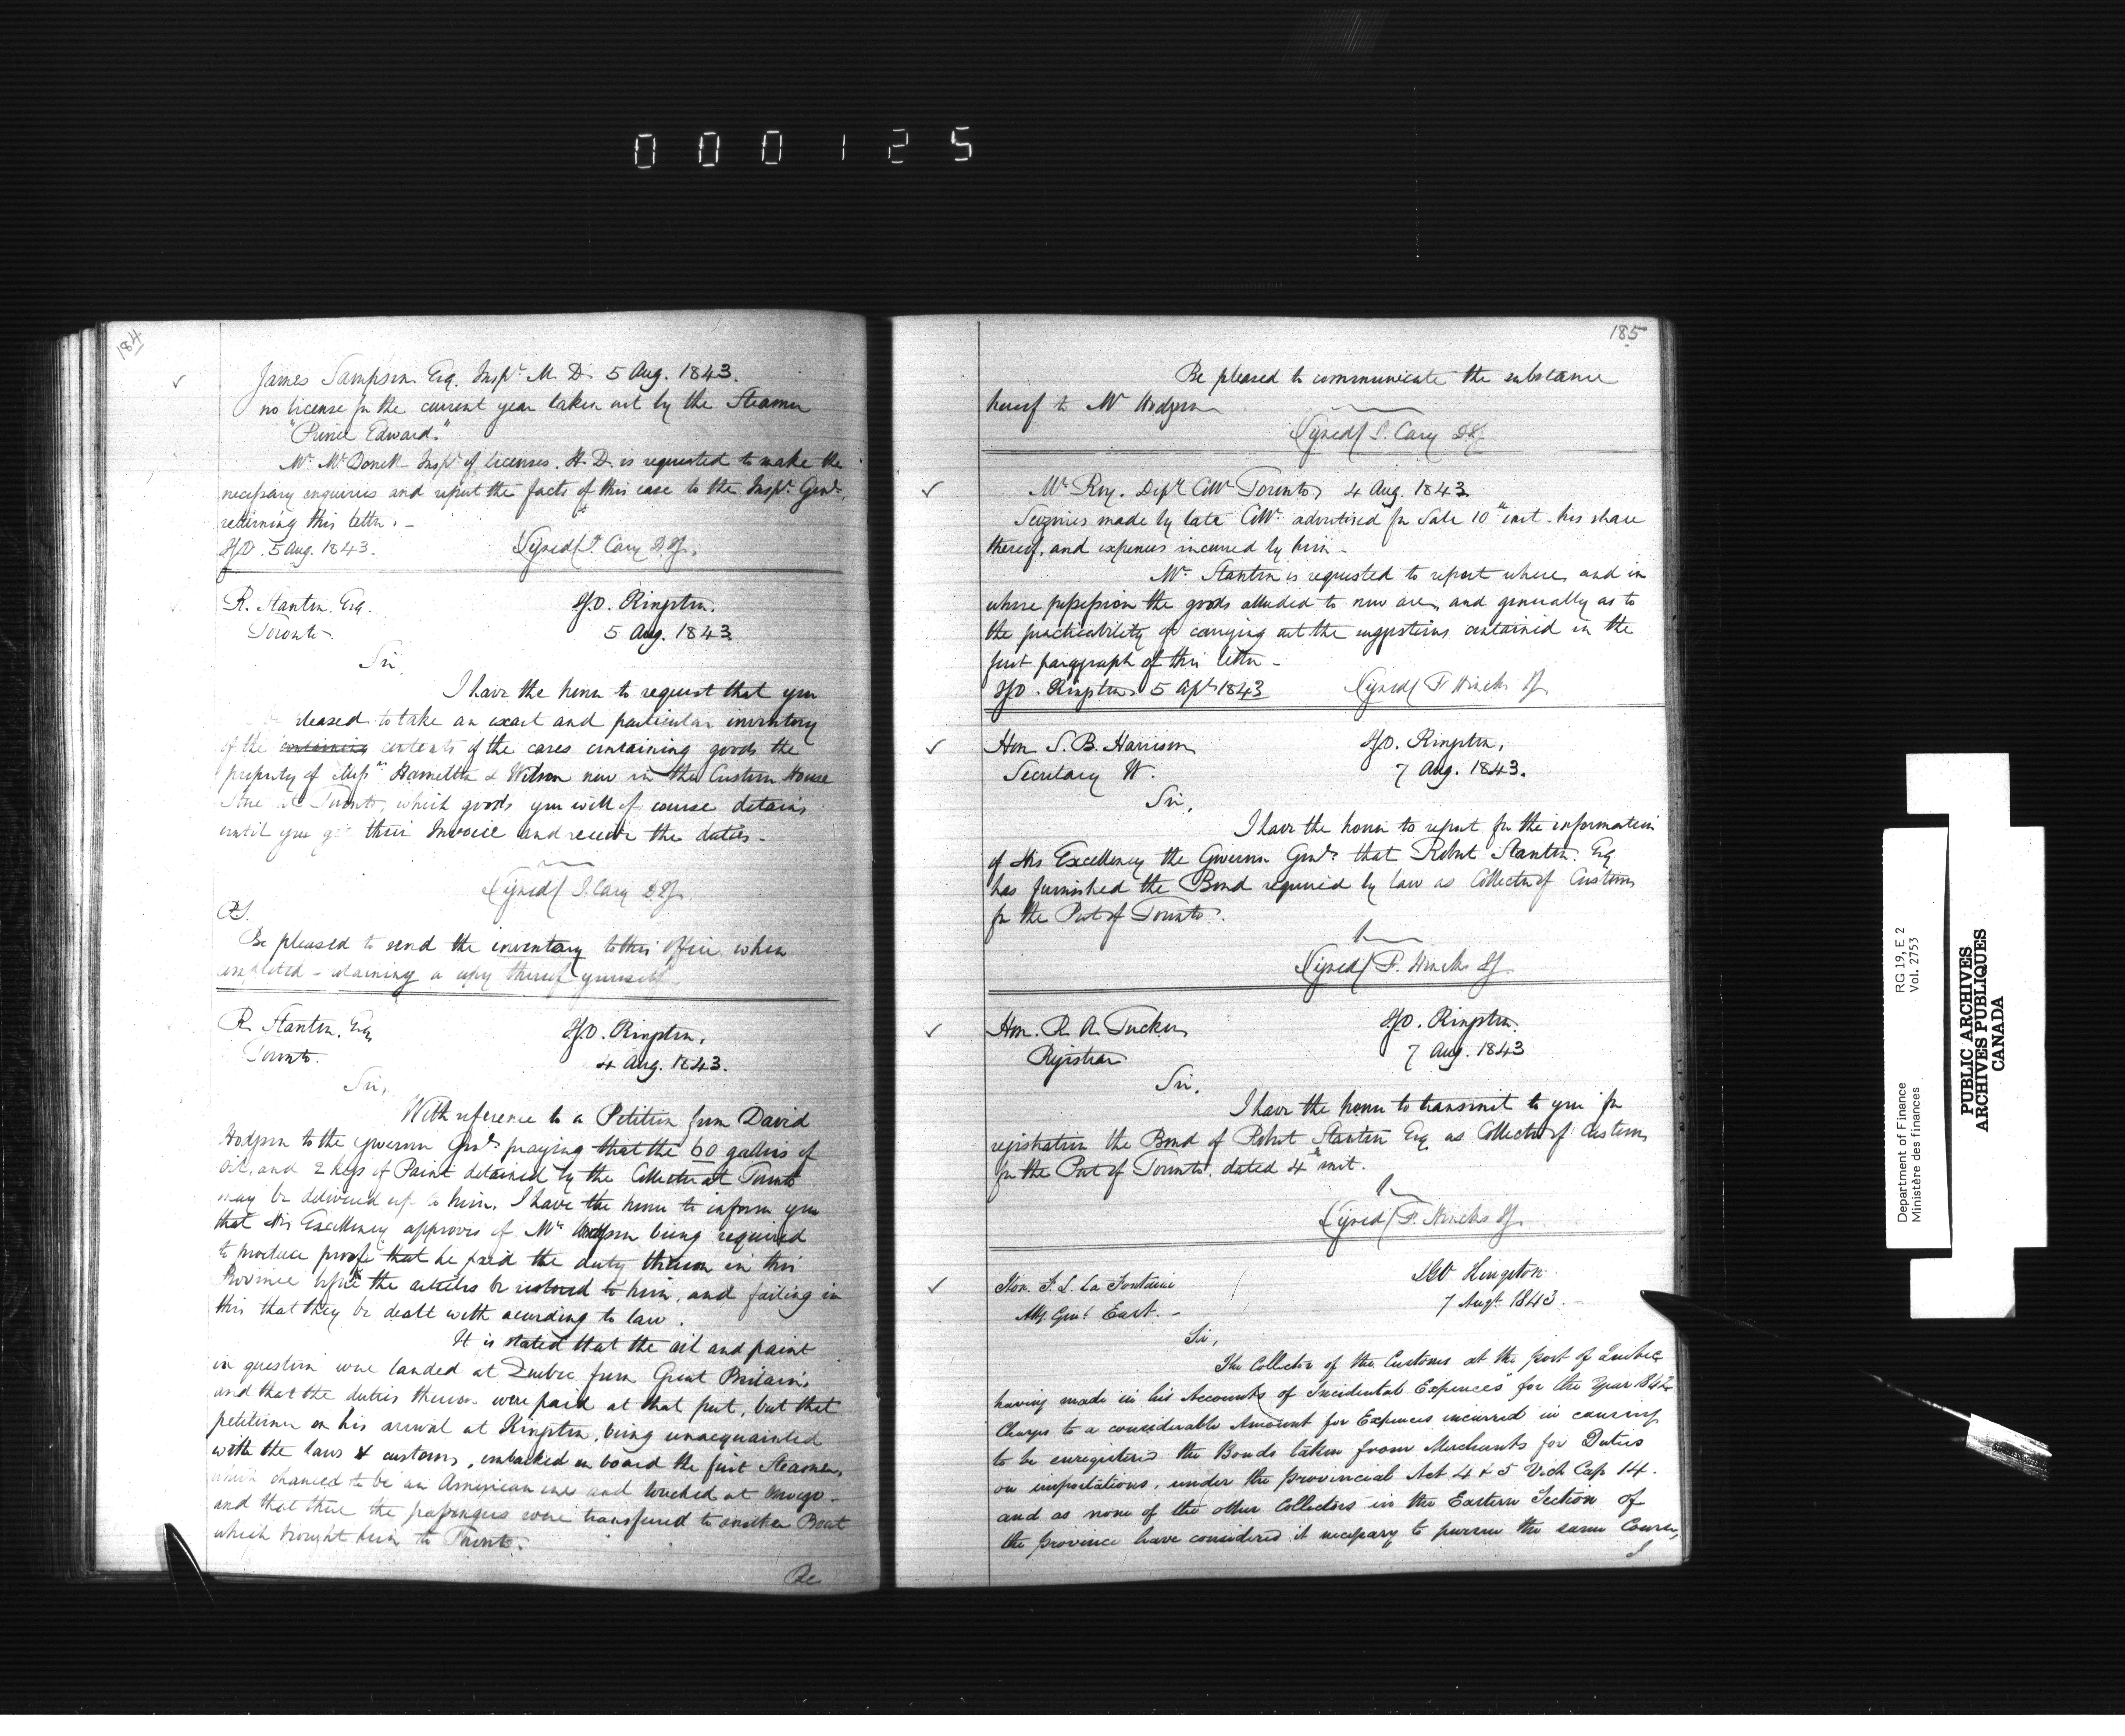 000125
184
James Sampson Esq. Inspr. M. D. 5 Aug. 1843.
no license for the current year taken out by the Steamer
"Prince Edward."
Mr. McDonell Inspr. of licenses. H. D. is requested to make the
necessary enquiries and report the facts of this case to the Inspr. Genl.
returning this letter. -
IGO. 5 Aug. 1843. Signed/ J. Cary D.IG.
R. Stanton Esq. IGO. Kingston.
Toronto. 5 Aug. 1843.
Sir,
I have the honor to request that you
be pleased to take an exact and particular inventory
of the containing contents of the cases containing goods the
property of Messrs. Hamilton & Wilson now in the Custom House
Store at Toronto, which goods you will of course detain
until you get their Invoice and receive the duties.
Signed/ J. Cary D.IG.
P.S.
Be pleased to send the inventory to this Office when
completed - retaining a copy thereof yourself.
R. Stanton, Esq. IGO. Kingston.
Toronto. 4 Aug. 1843.
Sir,
With reference to a Petition from David
Hodgson to the Governor Genl. praying that the 60 gallons of
Oil, and 2 kegs of Paint detained by the Collector at Toronto
may be delivered up to him, I have the honor to inform you
that His Excellency approves of Mr. Hodgson being required
to produce proof that he paid the duty thereon in this
Province before the articles be restored to him, and failing in
this that they be dealt with according to law.
It is stated that the oil and paint
in question were landed at Quebec from Great Britain,
and that the duties thereon were paid at that port, but that
petitioner on his arrival at Kingston, being unacquainted
with the laws & customs, embarked on board the first Steamer,
which chanced to be an American one and touched at Oswego -
and that there the passengers were transferred to another Boat
which brought him to Toronto.
Be
185
Be pleased to communicate the substance
hereof to Mr Hodgson
Signed/ J. Cary D.IG
Mr. Roy. Depy. Collr. Toronto, 4 Aug. 1843.
Seizures made by late Collr. advertised for Sale 10th inst - his share
thereof, and expenses incurred by him -
Mr. Stanton is requested to report where, and in
whose possession the goods alluded to now are, and generally as to
the practicability of carrying out the suggestions contained in the
first paragraph of this letter -
IGO. Kingston, 5 Apl 1843 Signed/ F Hincks IG
Hon S. B. Harrison IGO. Kingston,
Secretary W. 7 Aug. 1843.
Sir,
I have the honor to report for the information
of His Excellency the Governor Genl. that Robert Stanton. Esq
has furnished the Bond required by law as Collector of Customs
for the Port of Toronto.
Signed/ F. Hincks IG
Hon. R. A. Tucker IGO. Kingston.
Registrar 7 Aug. 1843
Sir,
I have the honor to transmit to you for
registration the Bond of Robert Stanton Esq as Collector of Customs
for the Port of Toronto, dated 4th inst.
Signed/ F. Hincks IG
Hon. F. L. La Fontaine IGO Kingston
Atty. Genl. East. - 7 Augt. 1843.
Sir,
The Collector of the Customs at the port of Quebec
having made in his Accounts of "Incidental Expences" for the Year 1842
Charges to a considerable Amount for Expences incurred in causing
to be enregistered the Bonds taken from Merchants for Duties
on importations, under the provincial Act 4 & 5 Vich Cap 14.
and as none of the other Collectors in the Eastern Section of
the province have considered it necessary to pursue the same Course,
I
Department of Finance RG 19, E 2
Ministère des finances Vol. 2753
PUBLIC ARCHIVES
ARCHIVES PUBLIQUES
CANADA